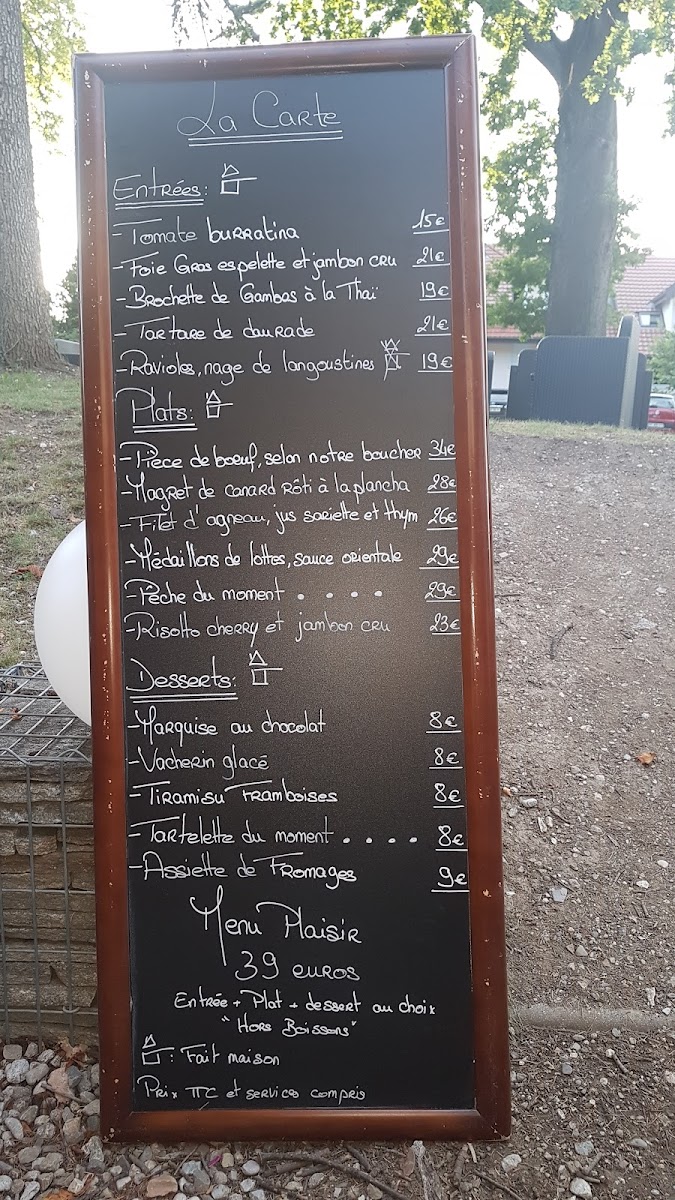 La Carte
Entrées:
- Tomate burratina 15€
- Foie Gras espelette et jambon cru 21€
- Brochette de Gambas à la Thaï 19€
- Tartare de daurade 21€
- Ravioles, nage de langoustines 19€
Plats:
- Pièce de boeuf, selon notre boucher 34€
- Magret de canard rôti à la plancha 28€
- Filet d'agneau, jus sariette et thym 26€
- Médaillons de lottes, sauce orientale 29€
- Pêche du moment . . . . 29€
- Risotto cherry et jambon cru 23€
Desserts:
- Marquise au chocolat 8€
- Vacherin glacé 8€
- Tiramisu Framboises 8€
- Tartelette du moment . . . . 8€
- Assiette de Fromages 9€
Menu Plaisir
39 euros
Entrée + Plat + dessert au choix
"Hors Boissons"
: Fait maison
Prix TTC et services compris